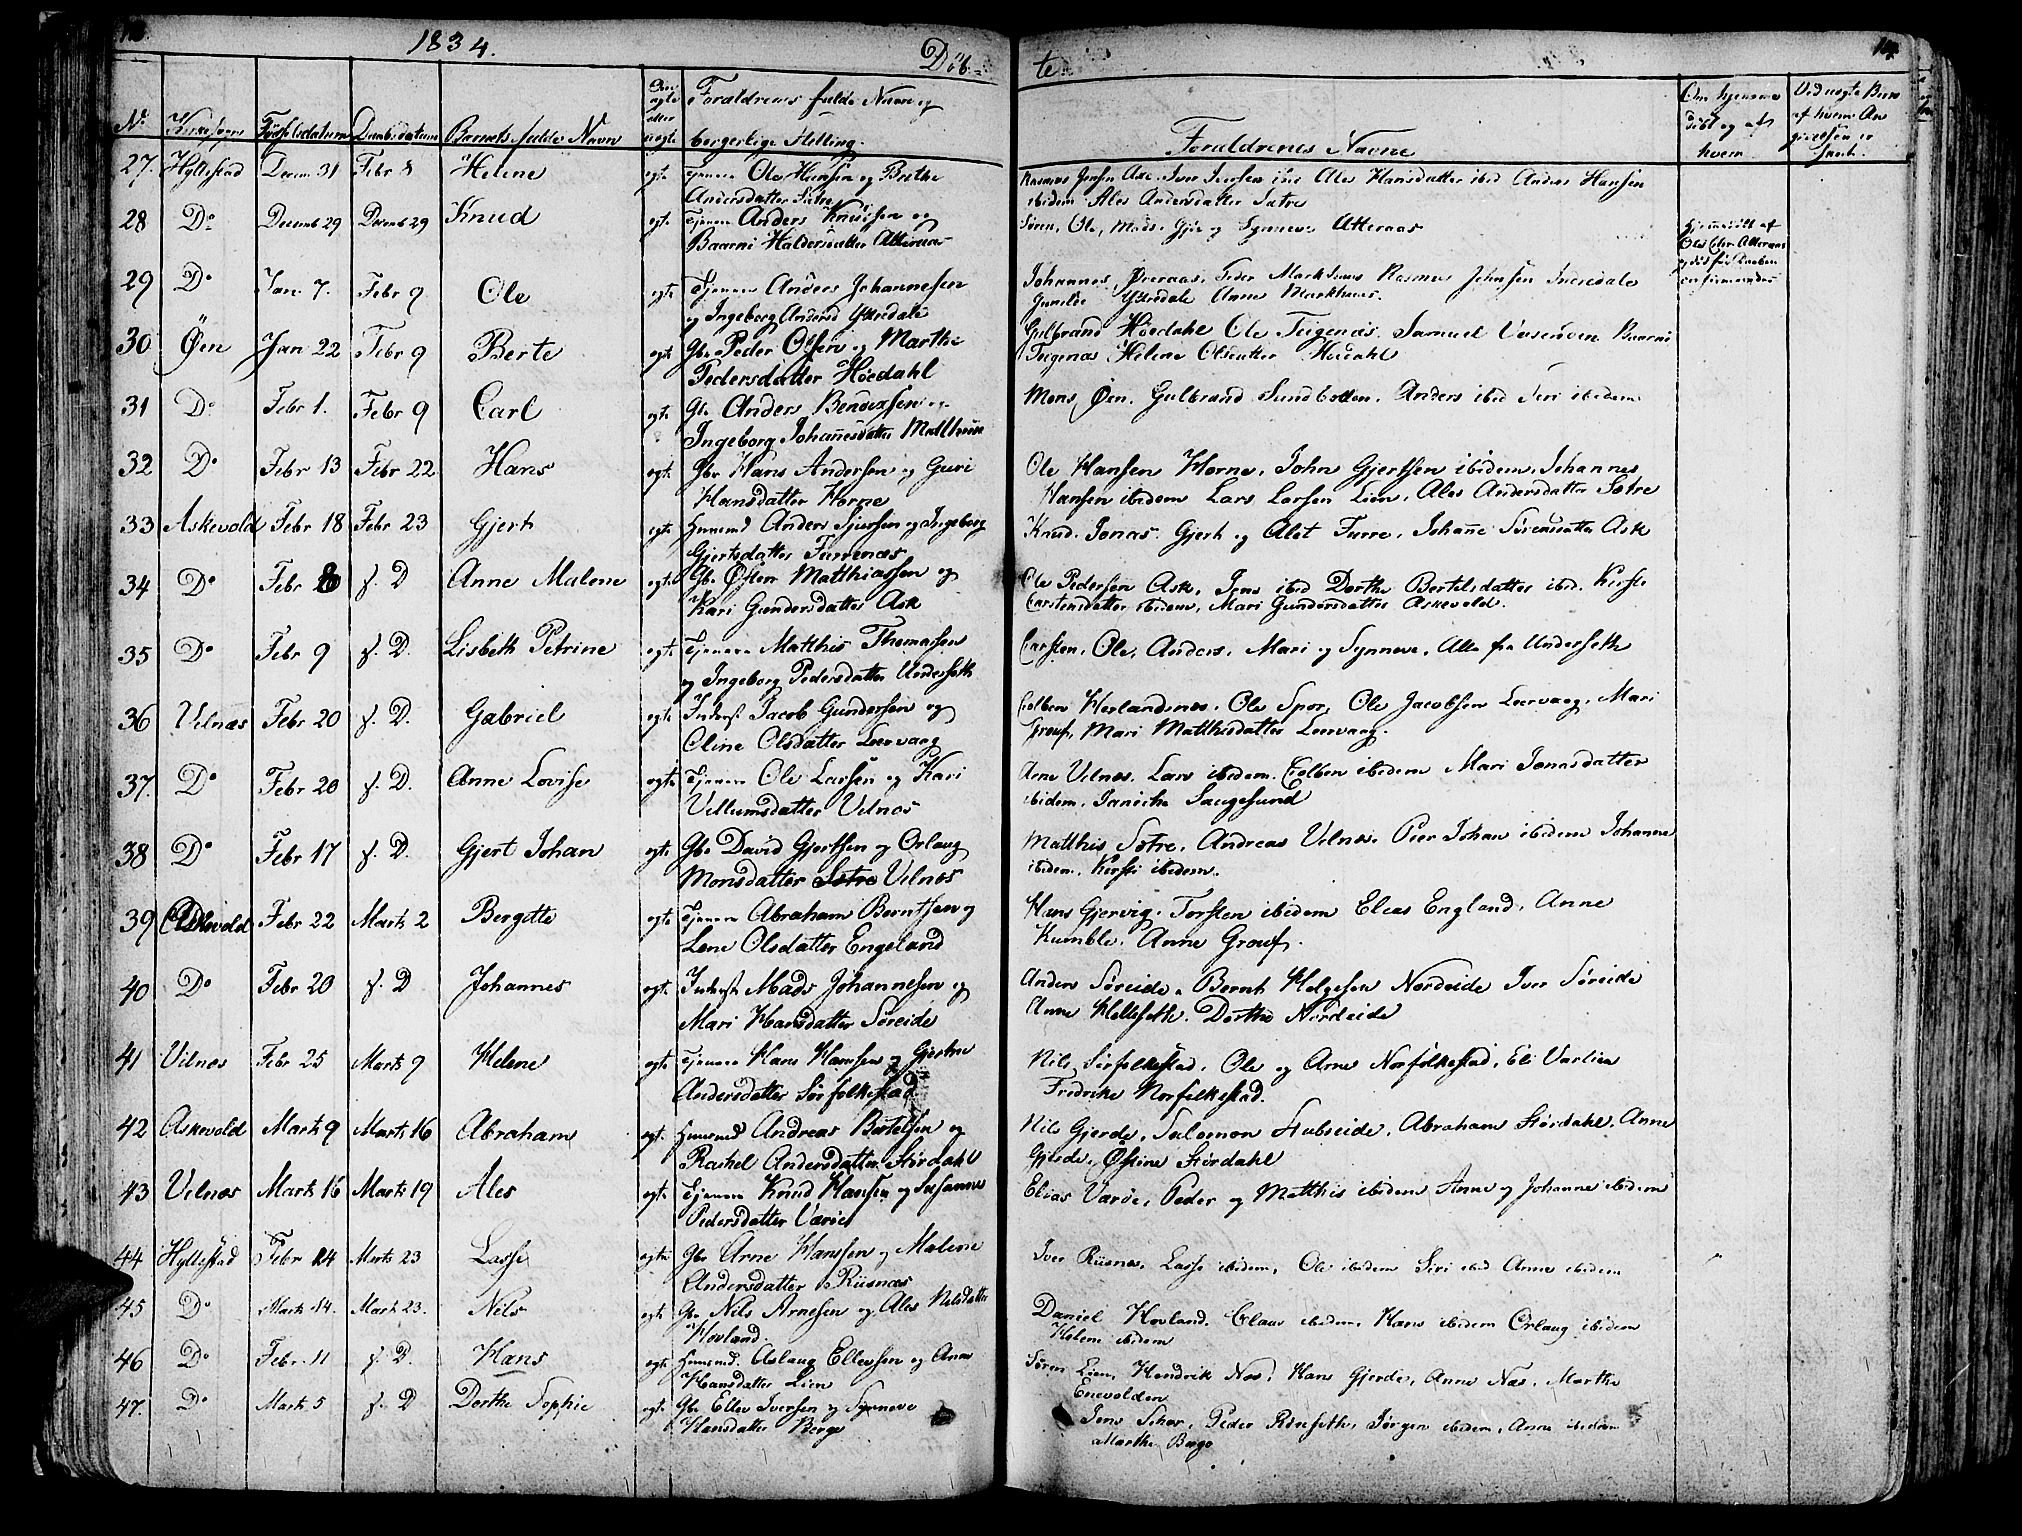 1834.
Döb-
te
14.
No Kirkesogn Födselsdatum Daabsdatum Barnets fulde Navn
Om ægte eller uægte
Forældrenes fulde Navne og
borgerlige Stilling.
Forældrenes Navne
Om hjemme
döbt og af
hvem
Ved uægte Börn
af hvem An
givelsen er
skeet.
27. Hyllestad Decem 31 Febr 8 Helene egt. Ole Hansen og Berthe
Andersdatter Sætre
Rasmus Jensen Ase. Iver Iversen ibid Ales Hansdatter ibid Anders Hansen
ibidem Ales Andersdatter Sætre
28 Do Decemb 29 Decemb 29 Knud egt. Anders Knudsen og
Baarni Haldorsdatter Atteraas
Sönn, Ole, Mads, og Synneve Atteraas
Hjemmedöbt af
29 Do Jan. 7. Febr 9 Ole egt. Anders Johannesen
og Ingeborg Andersd Ytredale
Johannes Överaas, Peder Markhuus Rasmus Johnsen Indredale
Gunilde Ytredale Anne Markhuus.
30 Öen Jan 22 Febr 9 Berte egt. Gbr Peder Olsen og Marthe
Pedersdatter Höedahl
Gulbrand Höedahl Ole Teigenæs. Samuel Baarni
Teigenæs, Helene Olsdatter Höedahl
31 Do Febr 1. Febr 9 Carl egt. Gbr Anders Bendixsen og
Ingeborg Johannesdatter
Mons Öen. Gulbrand Sundbotten. Anders ibid Siri ibidem
32 Do Febr 13 Febr 22 Hans egt. Gbr Hans Andersen og Guri
Hansdatter Horne
Ole Hansen Horne, John Gjertsen ibidem, Johannes
Hansen ibidem Lars Larsen Lien, Ales Andersdatter Sætre
33 Askevold Febr 18 Febr 23 Gjert egt. Huusmd Anders Sjursen og Ingeborg
Gjertsdatter Furrenæs
Knud. Jonas. Gjert og Alet Furre, Johanne Sörensdatter Ask
34 Do Febr 8 s. D Anne Malene egt. Gbr Östen Matthiassen og
Kari Gundersdatter Ask
Ole Pedersen Ask, Jens ibid Dorthe Bertelsdatter ibid. Kirsti
Carstensdatter ibidem, Mari Gundersdatter Askevold.
35 Do Febr 9 s. D. Lisbeth Petrine egt. Matthis Thomassen
og Ingeborg Pedersdatter Underseth
Carsten, Ole, Anders, Mari og Synneve, Alle fra Underseth
36 Vilnæs Febr 20 s. D. Gabriel egt. Inderst Jacob Gundersen og
Oline Olsdatter Leervaag
Colben Herlandsnes. Ole Spor, Ole Jacobsen Leervaag, Mari
Grouf, Mari Matthisdatter Leervaag.
37. Do Febr 20 s. D. Anne Lovise egt. Ole Larsen og Kari
Villumsdatter Vilnæs
Arne Vilnæs. Lars ibidem. Colben ibidem Mari Jonnsdatter
ibidem. Janiche Saugesund
38 Do Febr 17 s. D. Gjert Johan egt. Gbr David Gjertsen og Orlaug
Monsdatter Vilnæs
Matthis Sætre, Andreas Vilnæs, Peer Johan ibidem Johanne
ibidem, Kirsti ibidem.
39 Askevold Febr 22 Marts 2 Bergitte egt. Abraham Berntsen og
Lene Olsdatter Engeland
Hans Gjervig. Torsten ibidem Elias England, Anne
Kumble. Anne Grouf.
40 Do Febr 20 s. D Johannes egt. Inderst Mads Johannesen og
Mari Hansdatter Söreide
Anders Söreide. Bernt Helgesen Nordeide Iver Söreide
Anne Helleseth. Dorthe Nordeide
41 Vilnæs Febr 25 Marts 9 Helene egt. Hans Hansen og
Andersdatter Sörfolkestad
Nils Sörfolkestad, Ole og Arne Norfolkestad, Eli Varlien
Fredrike Norfolkestad.
42 Askevold Marts 9 Marts 16 Abraham egt. Huusmd Andreas Bertelsen og
Rachel Andersdatter Stördahl
Nils Gjerde, Salomon Stubseide, Abraham Stördahl, Anne
Gjerde, Östine Stördahl
43 Vilnæs Marts 16 Marts 19 Ales egt. Knud Hansen og Susanne
Pedersdatter Værøe
Elias Værøe, Peder og Matthis ibidem Anne og Johanne ibidem
44 Hyllestad Febr 14 Marts 23 Lasse egt. Gbr Arne Hansen og Malene
Andersdatter Riisnæs
Iver Riisnæs, Lasse ibidem, Ole ibidem Siri ibid Anne ibidem
45 Do Marts 14. Marts 23. Nils egt. Gbr Nils Arnesen og Ales Nilsdatter
Hovland.
Daniel Hovland. Claus ibidem, Hans ibidem Orlaug ibidem
Helene ibidem
46 Do Febr 11 s. D. Hans egt. Huusmd. Aslaug Ellevsen og Anne
Hansdatter Lien
Sören Lien, Hendrik Næs, Hans Gjerde, Anne Næs, Marthe
Enevolden
47. Do Marts 5 s. D Dorthe Sophie egt. Gbr Ellev Iversen og Synneve
Hansdatter Berge
Jens Peder Rönseth, Jörgen ibidem, Anne ibidem
Marthe Berge